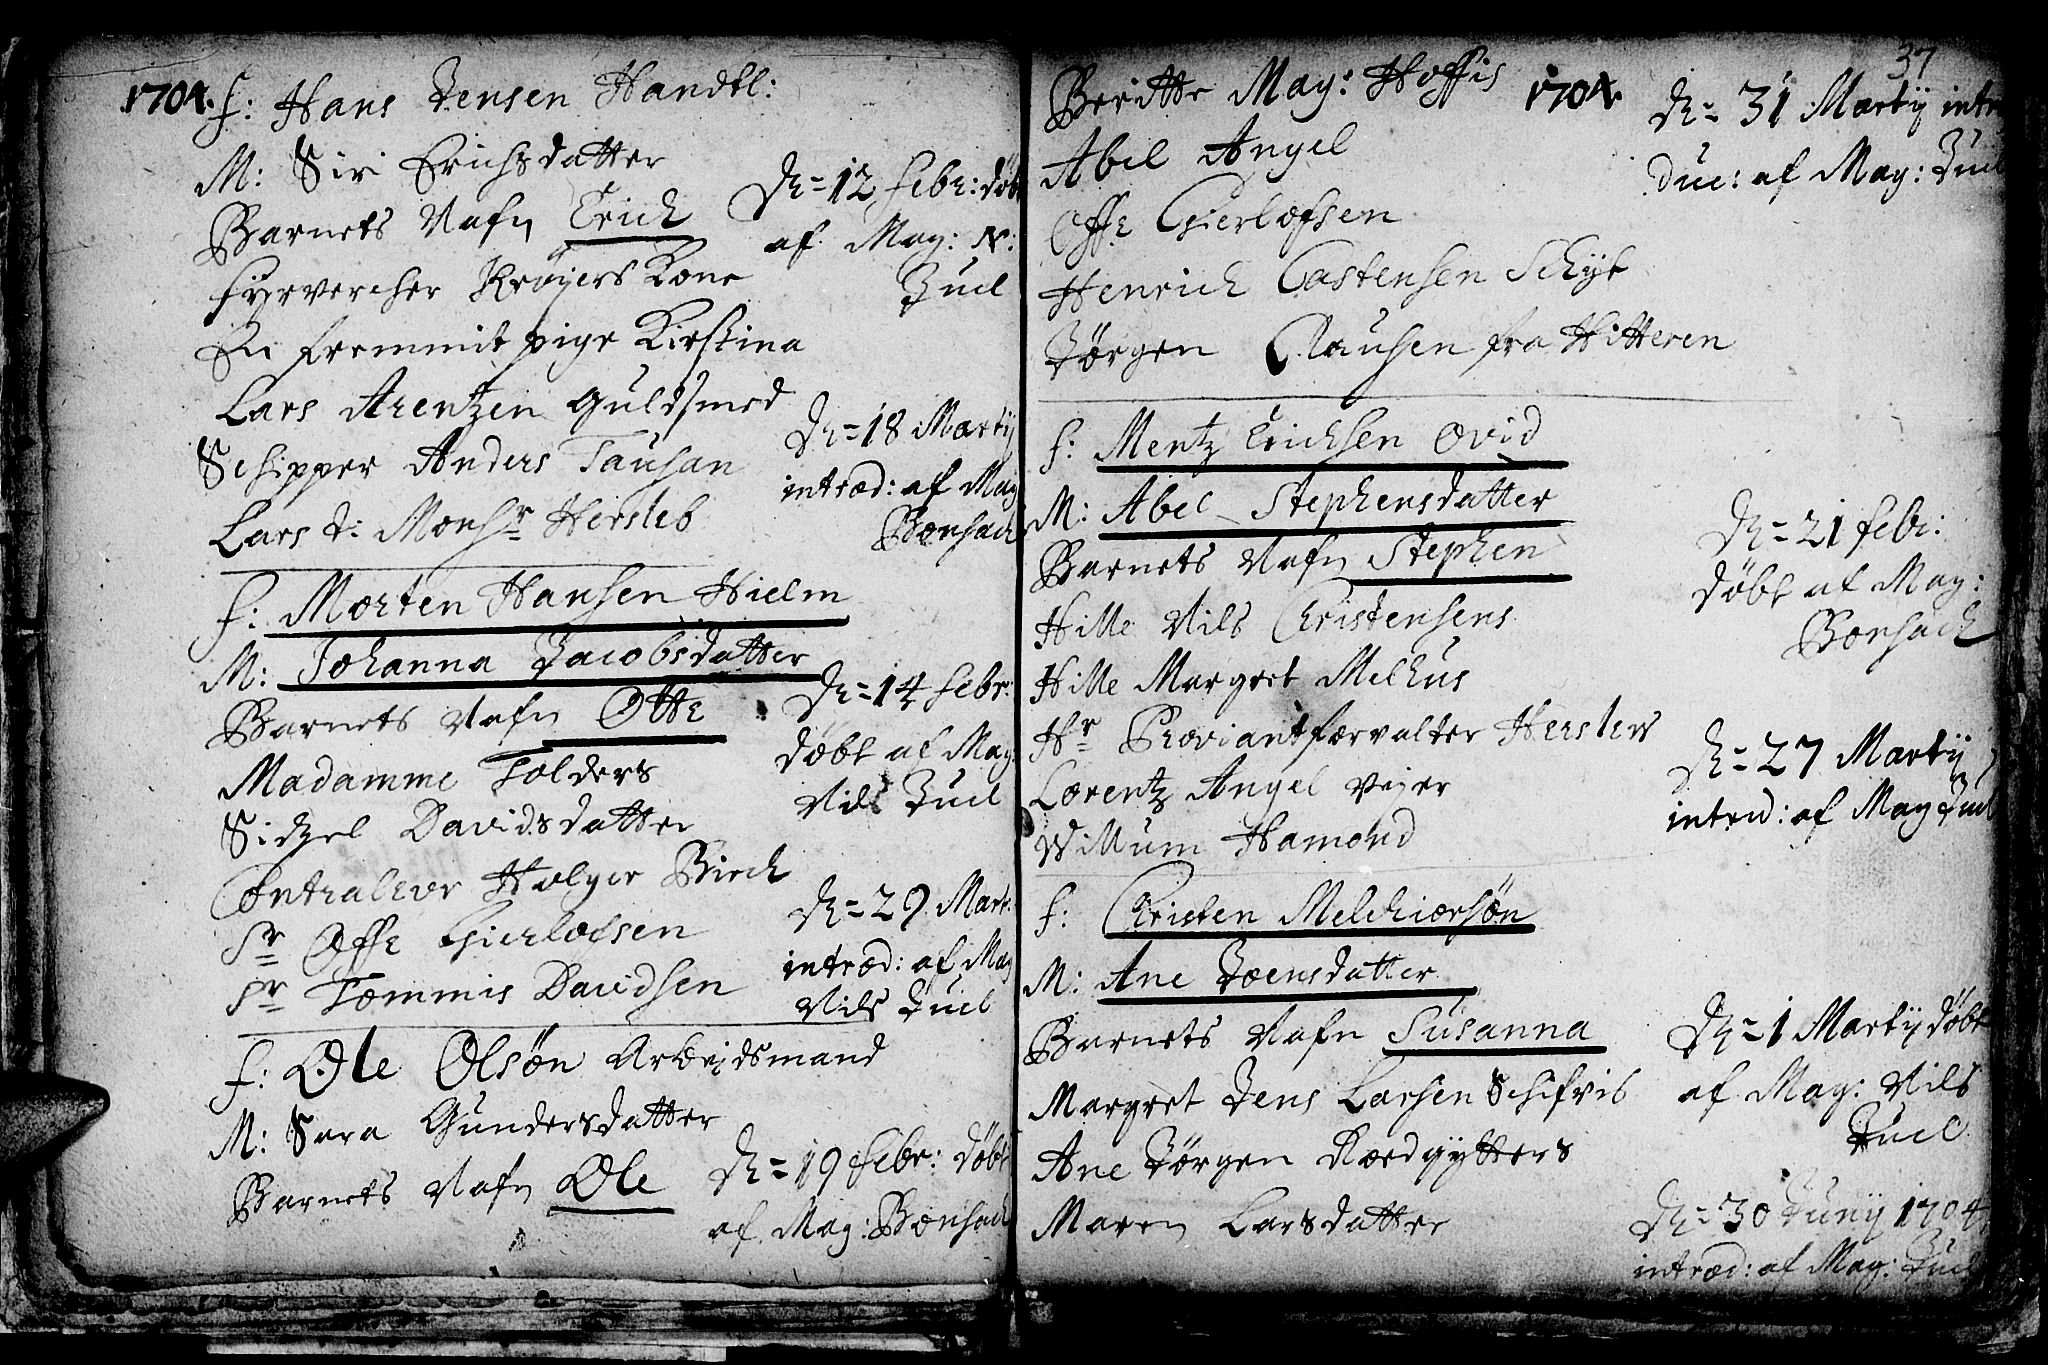 1704.
F: Hans Jensen Handtl:
M: Siri Erichsdatter
Barnets Nafn Erich
Fyrvercher Krøyers Kone
En fremmit pige Kirstina
Lars Arentzen Guldsmed
Schipper Anders Tausan
Lars d: Monsr Hersleb
Dn=12 Febr: døbt
af Mag: N:
Juel
Dn=18 Martij
introd: af Mag
Bonsach
F: Morten Hansen Hielm
M: Johanna Jacobsdatter
Barnets Nafn Otte
Madamme Tolders
Sidzel Davidsdatter
Contraleur Holger Birch
Sr Offe Gierlofsen
Sr Tommis Davidsen
Dn=14 Febr:
døbt af Mag:
Nils Juel
Dn=29 Mart:
introd: af Mag
Nils Juel
F: Ole Olsøn Arbeidsmand
M: Sara Gundersdatter
Barnets Nafn Ole
Dn=19 Febr: døbt
af Mag: Bonsach
37
1704.
Beritte Mag: Hoffis
Abel Angel
Offe Gierlofsen
Henrich Castensen Schyt
Jørgen Clausen fra Hitteren
Dn=31 Martij intro
duc: af Mag: Juel
F: Mentz Erichsen Ovid
M: Abel Stephensdatter
Barnets Nafn Stephen
Hille Nils Christensens
Hille Margret Melhus
Hr Proviantforvalter Hersleb
Lorentz Angel Veier
Willum Hamond
Dn=21 Febr:
døbt af Mag:
Bonsach
Dn=27 Martij
introd: af Mag Juel
F: Christen Melchiorsøn
M: Ane Joensdatter
Barnets Nafn Susanna
Margret Jens Larsen Schifvis
Ane Jørgen Roedgytters
Maren Larsdatter
Dn=1 Martij døbt
af Mag: Nils
Juel
Dn=30 Junij 1704
introd: af Mag: Juel